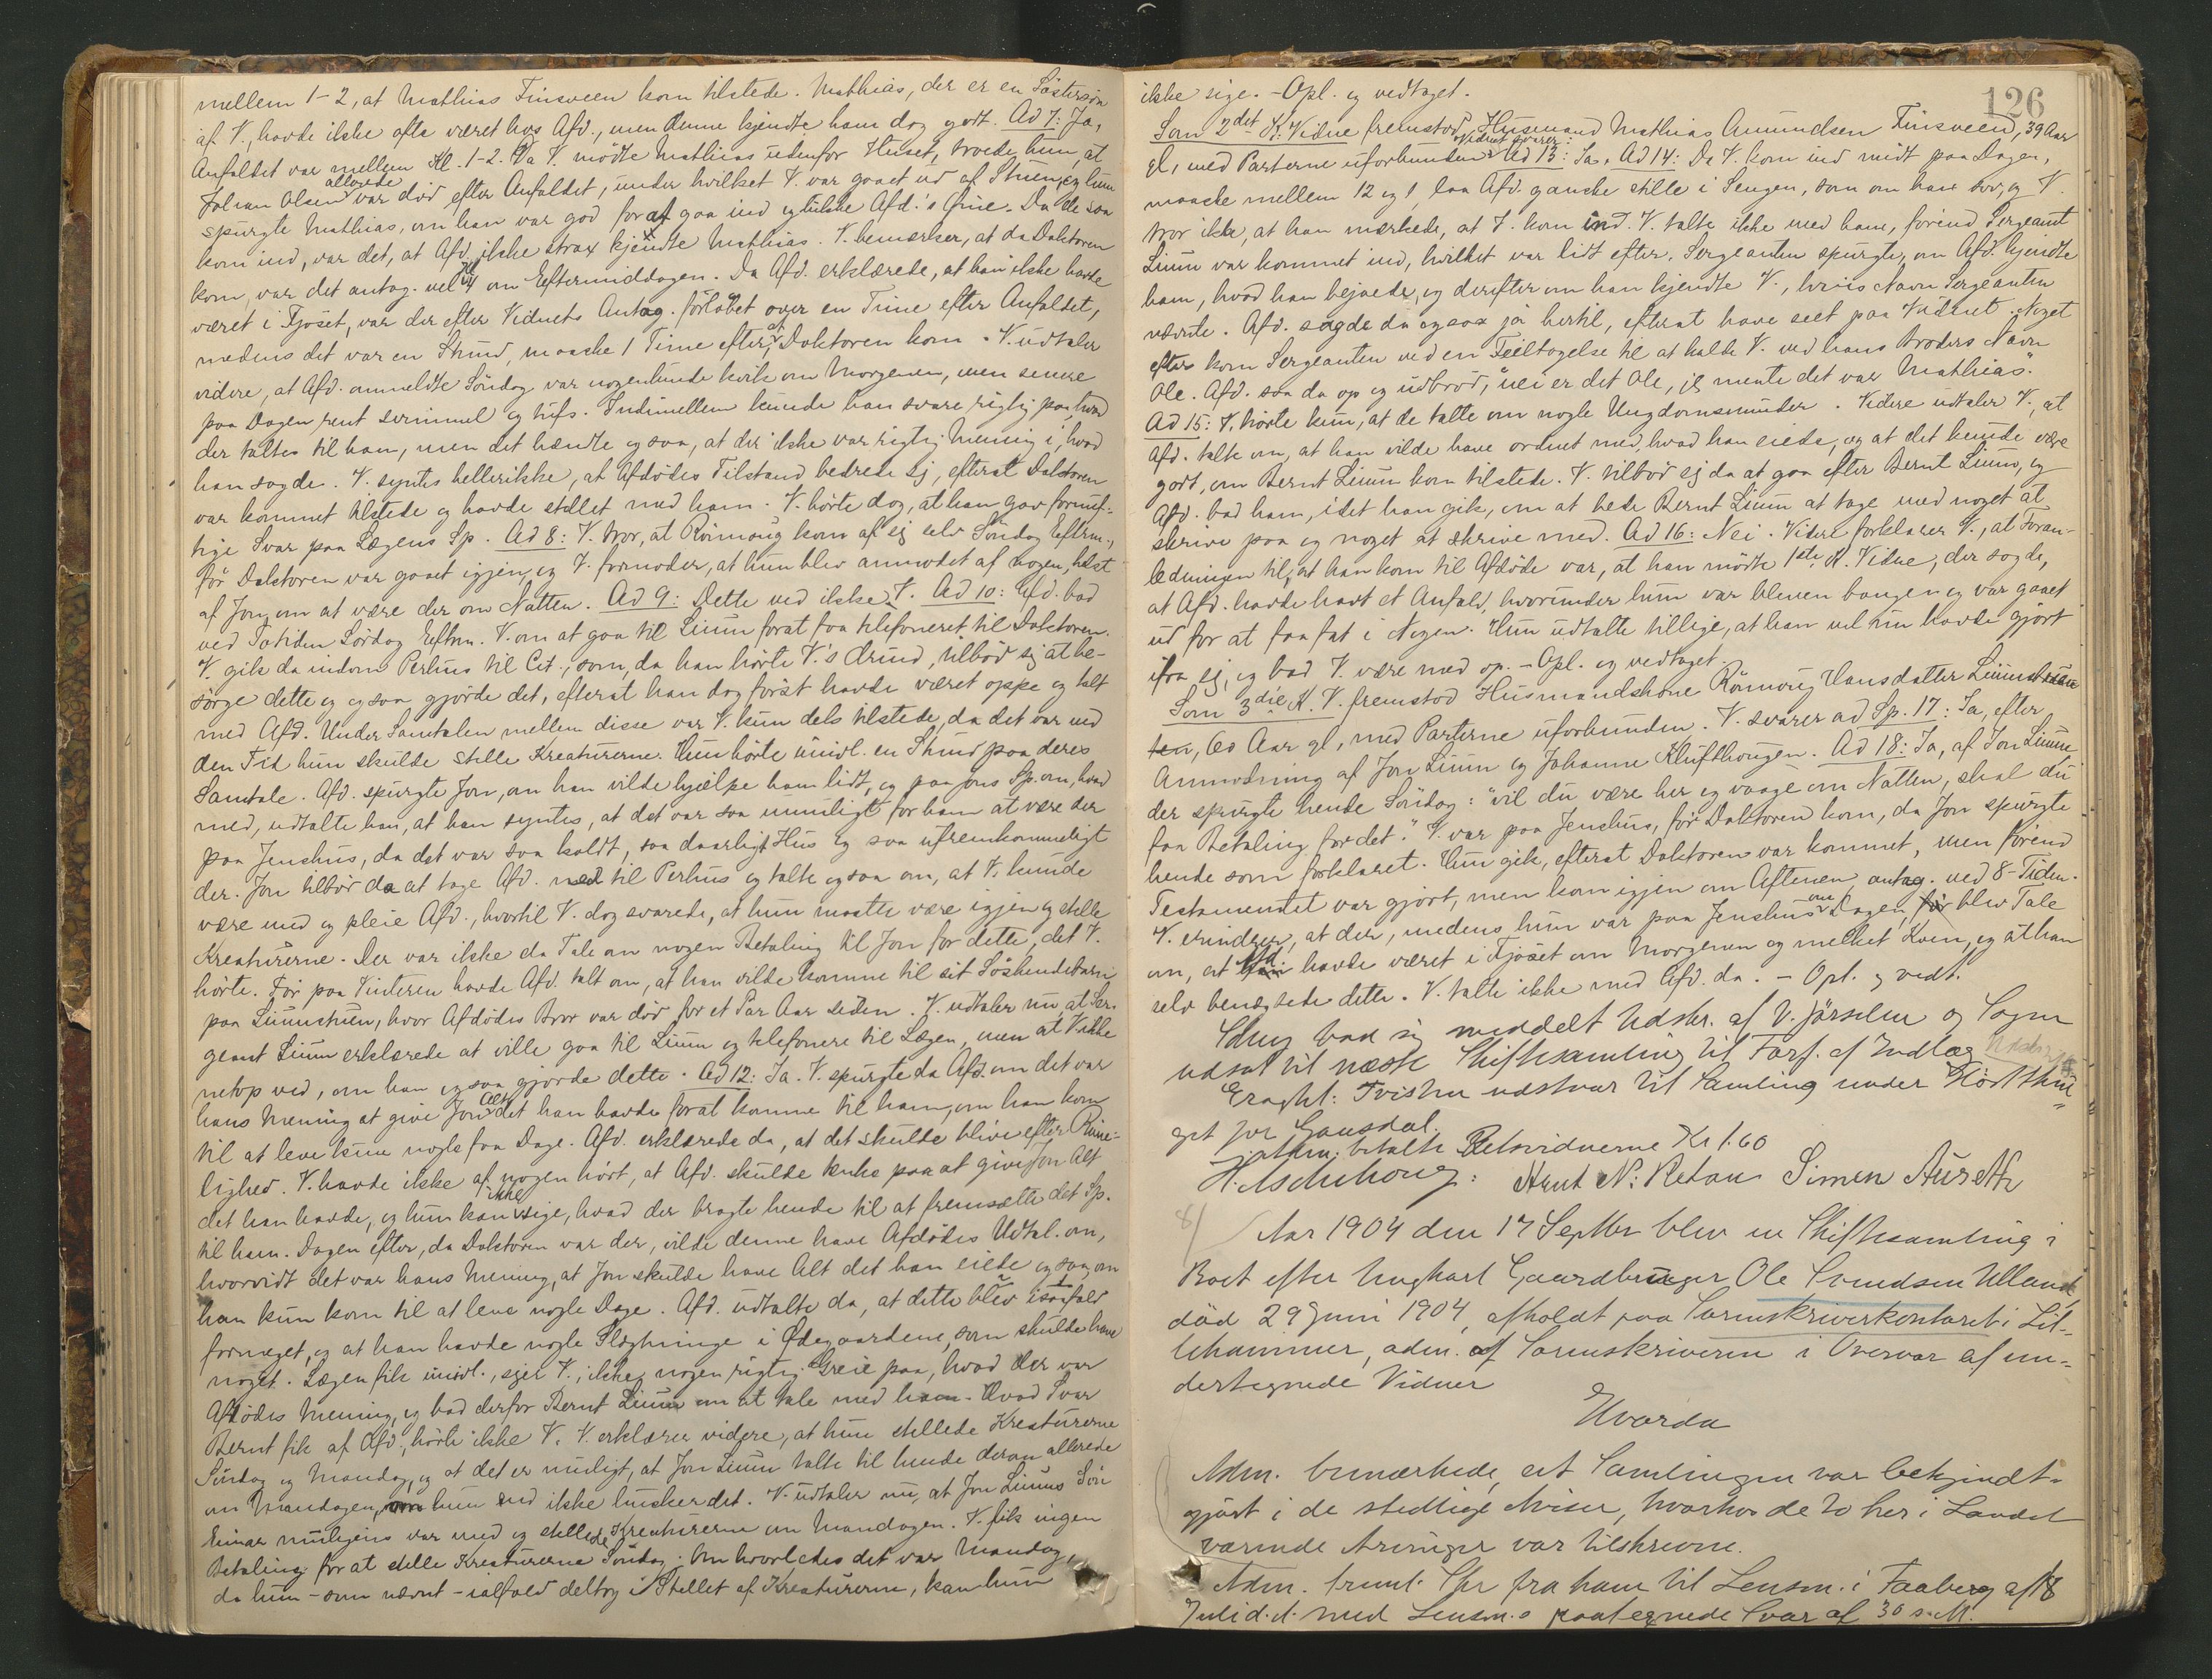 mellem 1-2, at Mathias Finsveen kom tilstede. Mathias, der er en Søstersøn
af V., havde ikke ofte været hos Afd., men denne kjendte ham dog godt. Ad 7: Ja,
Anfaldet var mellem Kl. 1-2. Da V. mødte Mathias udenfor Huset, troede hun, at
Johan Olsen allerede var død efter Anfaldet, under hvilket V. var gaaet ud af Stuen, og hun
spurgte Mathias, om han var god for at gaa ind og lukke Afd.'s Øine. Da de saa
kom ind, var det, at Afd. ikke strax kjendte Mathias. V. bemærker, at da Doktoren
kom, var det antag. vel Kl 4 om Eftermiddagen. Da Afd. erklærede, at han ikke havde
været i Fjøset, var der efter Vidnets Antag. forløbet over en Time efter Anfaldet,
medens det var en Stund, maaske 1 Time efter, at Doktoren kom. V. udtaler
videre, at Afd. anmeldte Søndag var nogenlunde kvik om Morgenen, men senere
paa Dagen rent svimmel og tufs. Indimellem kunde han svare rigtig paa hvad
der taltes til ham, men det hændte ogsaa, at der ikke var rigtig Mening i, hvad
han sagde. V. syntes hellerikke, at Afdødes Tilstand bedrede sig, efterat Doktoren
var kommet tilstede og havde stellet med ham. V. hørte dog, at han gav fornuf-
tige Svar paa Lægens Sp. Ad 8: V. tror, at Rønnoug kom af sig selv Søndag Efterm.,
før Doktoren var gaaet igjen, og V. formoder, at hun blev anmodet af nogen, helst
af Jon, om at være der om Natten. Ad 9: Dette ved ikke V. Ad 10: Afd. bad
ved Totiden Lørdag Efterm. V. om at gaa til Liium forat faa telefoneret til Doktoren.
V. gik da indom Perhus til Cit., som, da han hørte V.'s Ærind, tilbød sig at be-
sørge dette og ogsaa gjorde det, efterat han dog først havde været oppe og talt
med Afd. Under Samtalen mellem disse var V. kun dels tilstede, da det var ved
den Tid hun skulde stelle Kreaturerne. Hun hørte imidl. en Stund paa deres
Samtale. Afd. spurgte Jon, om han vilde hjælpe ham lidt, og paa Jons Sp. om, hvad
med, udtalte han, at han syntes, at det var saa umuligt for ham at være der
paa Jenshus, da det var saa koldt, saa daarligt Hus og saa ufremkommeligt
der. Jon tilbød da at tage Afd. ned til Perhus og talte ogsaa om, at V. kunde
være med og pleie Afd., hvortil V. dog svarede, at hun maatte være igjen og stelle
Kreaturerne. Der var ikke da Tale om nogen Betaling til Jon for dette, det V.
hørte. Før paa Vinteren havde Afd. talt om, at han vilde komme til sit Søskendebarn
paa Liiumstuen, hvor Afdødes Bror var død for et Par Aar siden. V. udtaler nu, at Ser-
geant Liium erklærede at ville gaa til Liium og telefonere til Lægen, men at V. ikke
netop ved, om han ogsaa gjorde dette. Ad 12: Ja. V. spurgte da Afd. om det var
hans Mening at give Jon Alt det han havde forat komme til ham, om han kom
til at leve kun nogle faa Dage. Afd. erklærede da, at det skulde blive efter Rime-
lighed. V. havde ikke af nogen hørt, at Afd. skulde tænke paa at give Jon Alt
det han havde, og hun kan ikke sige, hvad der bragte hende til at fremsætte det Sp.
til ham. Dagen efter, da Doktoren var der, vilde denne have Afdødes Udtal. om,
hvorvidt det var hans Mening, at Jon skulde have Alt det han eiede ogsaa om
han kun kom til at leve nogle Dage. Afd. udtalte da, at dette blev isaafald
formeget, og at han havde nogle Slægtninge i Ødegaardene, som skulde have
noget. Lægen fik imidl., siger V., ikke nogen rigtig Greie paa, hvad der var
Afdødes Mening, og bad derfor Bernt Liium om at tale med ham. Hvad Svar
Bernt fik af Afd., hørte ikke V. V. erklærer videre, at hun stellede Kreaturerne
Søndag og Mandag, og at det er muligt, at Jon Liium talte til hende derom allerede
om Mandagen, hun end ikke husker det. V. udtaler nu, at Jon Liiums Søn
Einar muligens var med og stellede Kreaturerne om Mandagen. V. fik ingen
Betaling for at stelle Kreaturerne Søndag. Om hvorledes det var Mandag,
da hun - som nævnt - ialfald deltog i Stellet af Kreaturerne, kan hun
126
ikke sige. - Opl. og vedtaget.
Som 2det K. Vidne fremstod Husmand Mathias Amundsen Finsveen, 39 Aar
gl, med Parterne uforbunden. Vidnet svarer: Ad 13: Ja, Ad 14: Da V. kom ind midt paa Dagen,
maaske mellem 12 og 1, laa Afd. ganske stille i Sengen, som om han sov, og V.
tror ikke, at han mærkede, at V. kom ind. V. talte ikke med ham, førend Sergeant
Liium var kommet ind, hvilket var lidt efter. Sergeanten spurgte, om Afd. kjendte
ham, hvad han bejaede, og derefter om han kjendte V., hvis Navn Sergeanten
nævnte. Afd. sagde da ogsaa ja hertil, efterat have seet paa Vidnet. Noget
efter kom Sergeanten ved en Feiltagelse til at kalde V. ved hans Broders Navn
Ole. Afd. saa da op og udbrød, "nei er det Ole, jeg mente det var Mathias".
Ad 15: V. hørte kun, at de talte om nogle Ungdomsminder. Videre udtaler V., at
Afd. talte om, at han vilde have ordnet med, hvad han eiede, og at det kunde være
godt, om Bernt Liium kom tilstede. V. tilbød sig da at gaa efter Bernt Liium, og
Afd. bad ham, idet han gik, om at bede Bernt Liium at tage med noget at
skrive paa og noget at skrive med. Ad 16: Nei. Videre forklarer V., at Foran-
ledningen til, at han kom til Afdøde var, at han mødte 1ste K. Vidne, der sagde,
at Afd. havde havt et Anfald, hvorunder hun var bleven bangen og var gaaet
ud for at faa fat i Nogen. Hun udtalte tillige, at han vel nu havde gjort
ifra sig, og bad V. være med op. - Opl. og vedtaget.
Som 3die K. V. fremstod Husmandskone Rønnoug Hansdatter Liiumstuen
60 Aar gl, med Parterne uforbunden. V. svarer ad Sp. 17: Ja, efter
Anmodning af Jon Liium og Johanne Klufthougen. Ad 18: Ja, af Jon Liium,
der spurgte hende Søndag: "vil du være her og vaage om Natten, skal du
faa Betaling for det." V. var paa Jenshus, før Doktoren kom, da Jon spurgte
hende som forklaret. Hun gik, efterat Doktoren var kommet, men førend
Testamentet var gjort, men kom igjen om Aftenen antag. ved 8-Tiden.
V. erindrer, at der, medens hun var paa Jenshus om Dagen, blev Tale
om, at Afd. havde været i Fjøset om Morgenen og melket Koen, og at han
selv benægtede dette. V. talte ikke med Afd. da. - Opl. og vedt.
bad sig meddelt Udskr. af V. førselen og Sagen
udsat til næste Skiftesamling til Forf. af Indlæg
Eragt: Tvisten udstaar til Samling under Høstthin-
get for Gausdal.
Adm. betalte Retsvidnerne Kr 1.60
H. Aschehoug. Arnt N: Simen
8/
Aar 1904 den 17 Septbr blev en Skiftesamling i
Boet efter Ungkarl Gaardbruger Ole Svendsen Ulland
død 29 Juni 1904, afholdt paa Sorenskriverkontoret i Lil-
lehammer, adm. af Sorenskriveren i Overvær af un-
dertegnede Vidner
Hvorda
Adm. bemærkede, at Samlingen var bekjendt-
gjort i de stedlige Aviser, hvorhos de to her i Landet
værende Arvinger var tilskrevne.
Adm. freml. Skr fra ham til Lensm. i Faaberg af 18
Juli d. A. med Lensm.s paategnede Svar af 30 s. M.